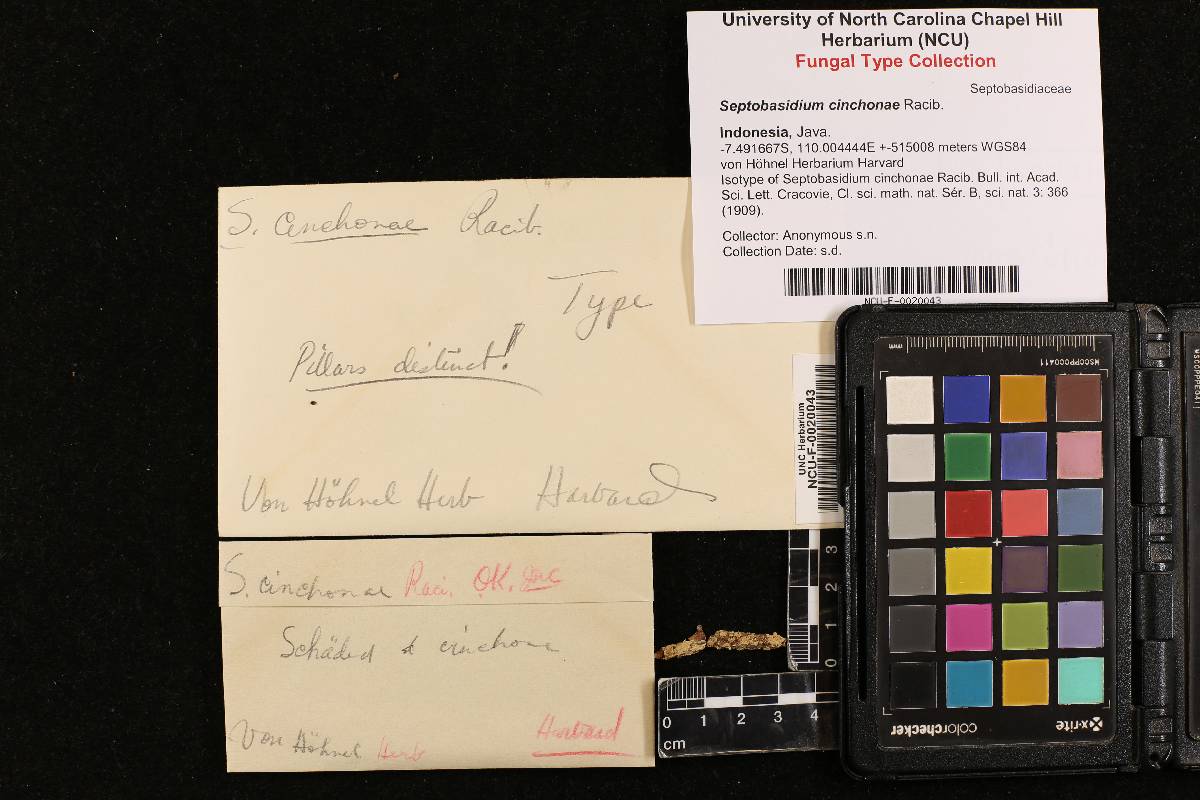 University of North Carolina Chapel Hill
Herbarium (NCU)
Fungal Type Collection
Septobasidiaceae
Septobasidium cinchonae Racib.
Indonesia, Java.
-7.491667S, 110.004444E +-515008 meters WGS84
von Höhnel Herbarium Harvard
Isotype of Septobasidium cinchonae Racib. Bull. int. Acad.
Sci. Lett. Cracovie, Cl. sci. math. nat. Sér. B, sci. nat. 3: 366
(1909).
Collector: Anonymous s.n.
Collection Date: s.d.
NCU-F-0020043
S. cinchonae Racib.
Type
Pillars distinct!
Von Höhnel Herb Harvard
UNC Herbarium
NCU-F-0020043
S. cinchonae Raci. OK.
cinchona
Von Höhnel Herb Harvard
0 1 2 3
0 1 2 3 4
cm
mm
MSCCPPC00411
x-rite
colorchecker